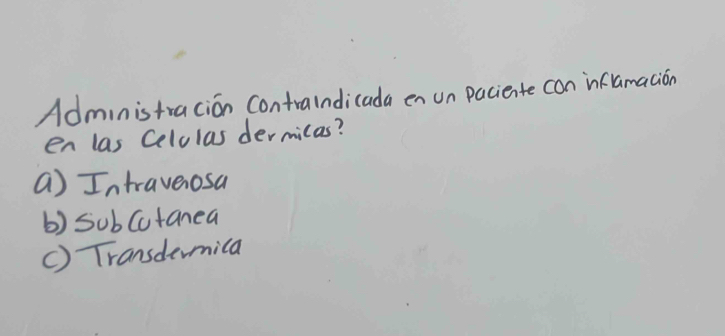 Administración Contraindicada en un paciente con inflamación
en las Celulas dermicas?
a) Intravenosa
b) Subcutanea
c) Transdermica